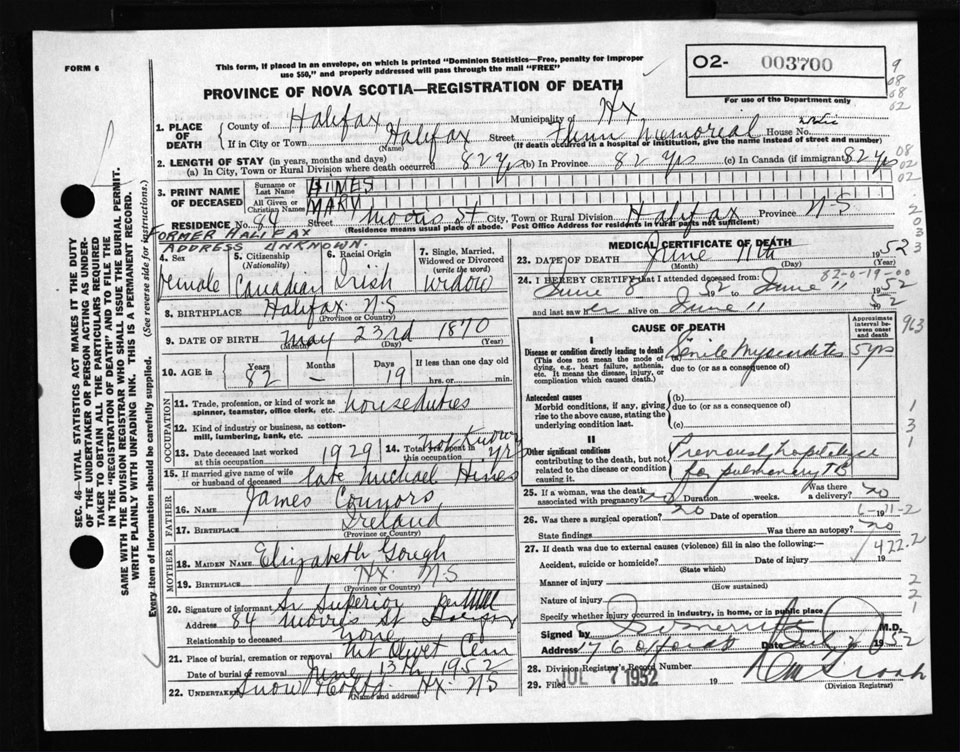 FORM 6
This form, if placed in an envelope, on which is printed "Dominion Statistics—Free, penalty for improper
use $50," and properly addressed will pass through the mail "FREE"
O2- 003700
For use of the Department only
PROVINCE OF NOVA SCOTIA—REGISTRATION OF DEATH
1. PLACE OF DEATH
County of Halifax Municipality of Hx
If in City or Town Halifax Street Flinn Memorial House No.
(Name) (If death occurred in a hospital or institution, give the name instead of street and number)
2. LENGTH OF STAY (in years, months and days)
(a) In City, Town or Rural Division where death occurred 82 Yrs (b) In Province 82 Yrs (c) In Canada (if immigrant) 82 yrs
3. PRINT NAME OF DECEASED
Surname or Last Name HINES
All Given or Christian Names MARY
RESIDENCE No. 84 Morris St City, Town or Rural Division Halifax Province N.S
(Residence means usual place of abode. Post Office Address for residents in rural parts not sufficient)
FORMER HALIFAX
ADDRESS UNKNOWN.
4. Sex female
5. Citizenship (Nationality) Canadian
6. Racial Origin Irish
7. Single, Married, Widowed or Divorced (write the word) Widow
8. BIRTHPLACE Halifax N.S
(Province or Country)
9. DATE OF BIRTH May 23rd 1870
(Month) (Day) (Year)
10. AGE in Years 82 Months — Days 19 If less than one day old hrs. or min.
OCCUPATION
11. Trade, profession, or kind of work as spinner, teamster, office clerk, etc. houseduties
12. Kind of industry or business, as cotton-mill, lumbering, bank, etc.
13. Date deceased last worked at this occupation 1929
14. Total yrs. spent in this occupation not know yr
15. If married give name of wife or husband of deceased late Michael Hines
FATHER
16. NAME James Connors
17. BIRTHPLACE Ireland
(Province or Country)
MOTHER
18. MAIDEN NAME Elizabeth Gough
19. BIRTHPLACE Hx. N.S
(Province or Country)
20. Signature of informant Sr Superior per
Address 84 Morris St Halifax
Relationship to deceased none
21. Place of burial, cremation or removal Mt Olivet Cem
Date of burial or removal June 13th 1952
22. Undertaker Snow & Co Ltd Hx. N.S
(Name and address)
MEDICAL CERTIFICATE OF DEATH
23. DATE OF DEATH June 11th 1952
(Month) (Day) (Year)
82-0-19-00
24. I HEREBY CERTIFY that I attended deceased from
June 8 52 to June 11 1952
and last saw her alive on June 11 52
CAUSE OF DEATH
Approximate interval between onset and death
I
Disease or condition directly leading to death (a) Senile Myocarditis 5 yrs
(This does not mean the mode of dying, e.g., heart failure, asthenia, etc. It means the disease, injury, or complication which caused death.)
due to (or as a consequence of)
Antecedent causes
Morbid conditions, if any, giving rise to the above cause, stating the underlying condition last.
(b)
due to (or as a consequence of)
(c)
II
Other significant conditions
contributing to the death, but not related to the disease or condition causing it.
Previously hospitalized
for pulmonary TB
25. If a woman, was the death associated with pregnancy? no Duration weeks. Was there a delivery? no
26. Was there a surgical operation? no Date of operation 6-11-2
State findings Was there an autopsy? no
27. If death was due to external causes (violence) fill in also the following:—
422.2
Accident, suicide or homicide? Date of injury 19
(State which)
Manner of injury
(How sustained)
Nature of injury
Specify whether injury occurred in industry, in home, or in public place
Signed by M.D.
Address 1952
28. Division Registrar's Record Number
29. Filed JUL 7 1952 19
(Division Registrar)
SEC. 46—VITAL STATISTICS ACT MAKES IT THE DUTY
OF THE UNDERTAKER OR PERSON ACTING AS UNDER-
TAKER TO OBTAIN ALL THE PARTICULARS REQUIRED
IN THE "REGISTRATION OF DEATH" AND TO FILE THE
SAME WITH THE DIVISION REGISTRAR WHO SHALL ISSUE THE BURIAL PERMIT.
WRITE PLAINLY WITH UNFADING INK. THIS IS A PERMANENT RECORD.
Every item of information should be carefully supplied. (See reverse side for instructions.)
9
08
08
02
08
02
2
0
3
3
963
1
3
1
2
2
1